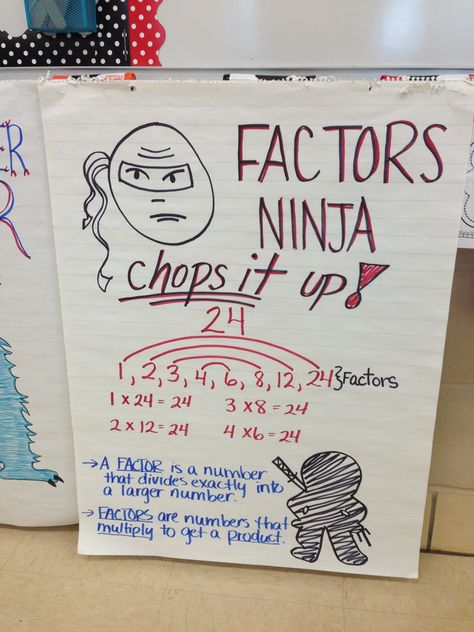 FACTORS
NINJA
chops it up!
24
1, 2, 3, 4, 6, 8, 12, 24 } Factors
1 x 24 = 24 3 x 8 = 24
2 x 12 = 24 4 x 6 = 24
→ A FACTOR is a number
that divides exactly into
a larger number.
→ FACTORS are numbers that
multiply to get a product.
ER
R